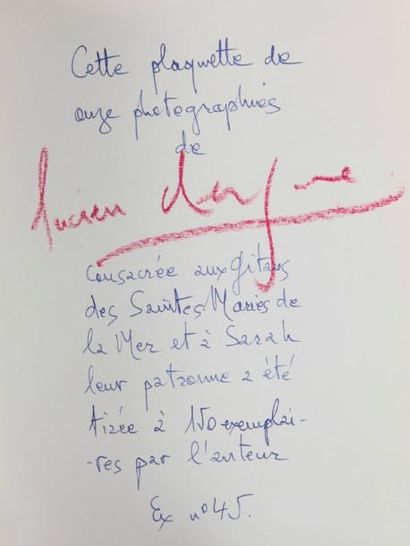 Cette plaquette de
onze photographies
de
Lucien Clergue
Consacrée aux Gitans
des Saintes Maries de
la Mer et à Sarah
leur patronne a été
tirée à 150 exemplai-
-res par l'auteur
Ex n° 45.